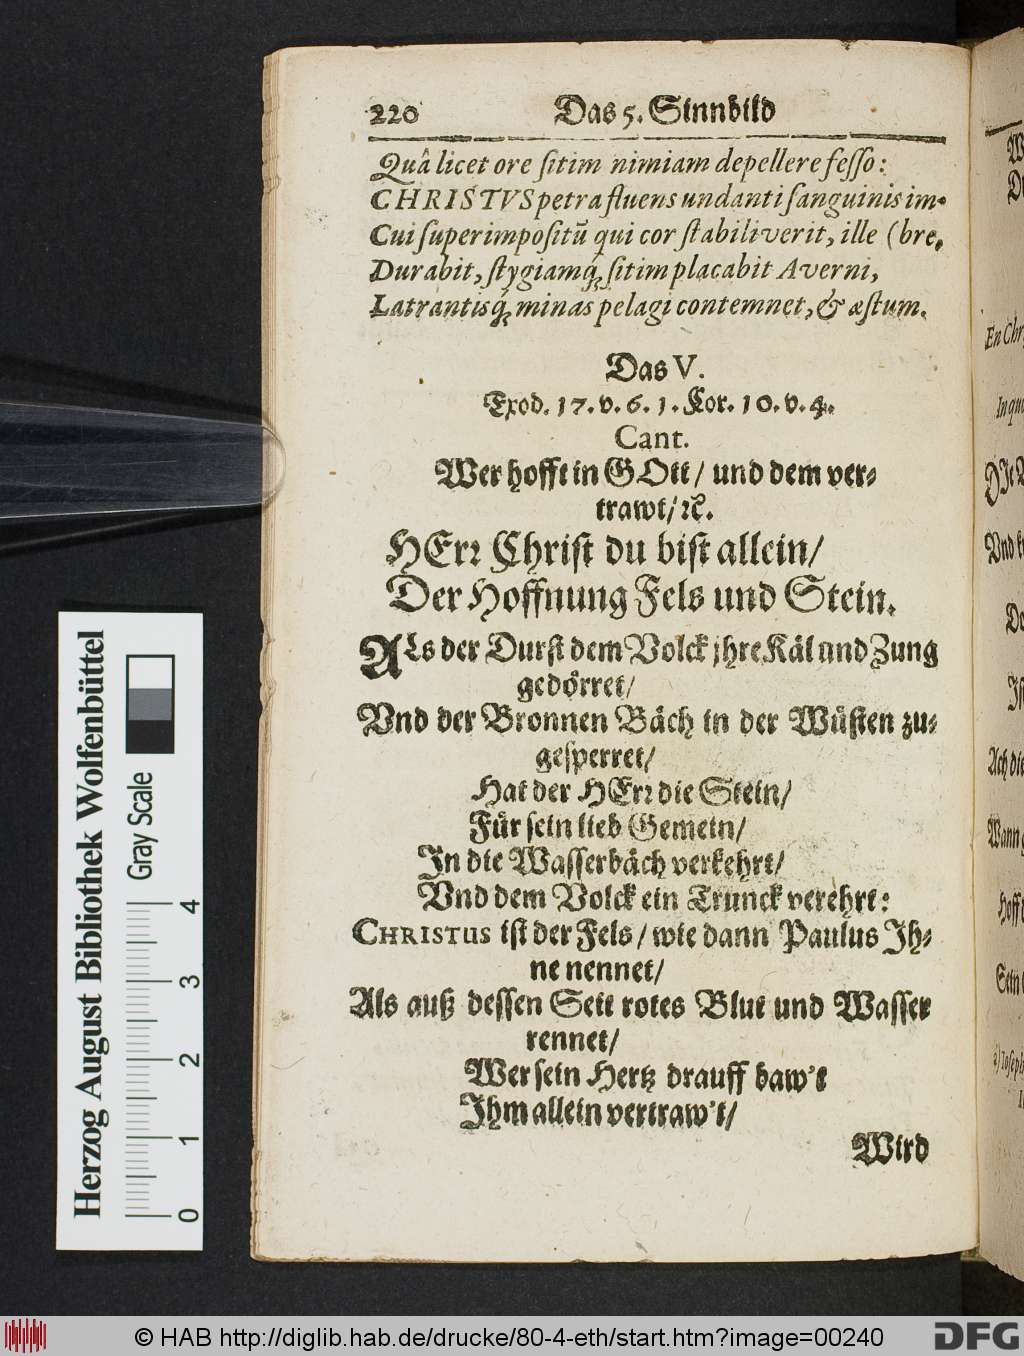 220 Das 5. Sinnbild
Quâ licet ore ſitim nimiam depellere feſſo:
CHRISTVS petra fluens undanti ſanguinis im-
Cui ſuperimpoſitū qui cor ſtabiliverit, ille (bre,
Durabit, ſtygiamq́; ſitim placabit Averni,
Latrantisq́; minas pelagi contemnet, & æſtum.
Das V.
Exod. 17. v. 6. 1. Cor. 10. v. 4.
Cant.
Wer hofft in GOtt / und dem ver-
trawt / ꝛc.
HErꝛ Chriſt du biſt allein /
Der Hoffnung Fels und Stein.
ALs der Durſt dem Volck jhre Käl und Zung
gedörret /
Vnd der Bronnen Bäch in der Wüſten zu-
geſperret /
Hat der HErꝛ die Stein /
Für ſein lieb Gemein /
In die Waſſerbäch verkehrt /
Vnd dem Volck ein Trunck verehrt:
CHRISTUS iſt der Fels / wie dann Paulus Ih-
ne nennet /
Als auß deſſen Seit rotes Blut und Waſſer
rennet /
Wer ſein Hertz drauff baw't
Ihm allein vertraw't /
Wird
En Chr
In qu
Vnd k
De
Ach die
Wann
Hoff
Sein
Herzog August Bibliothek Wolfenbüttel
Gray Scale
0 1 2 3 4
© HAB http://diglib.hab.de/drucke/80-4-eth/start.htm?image=00240
DFG